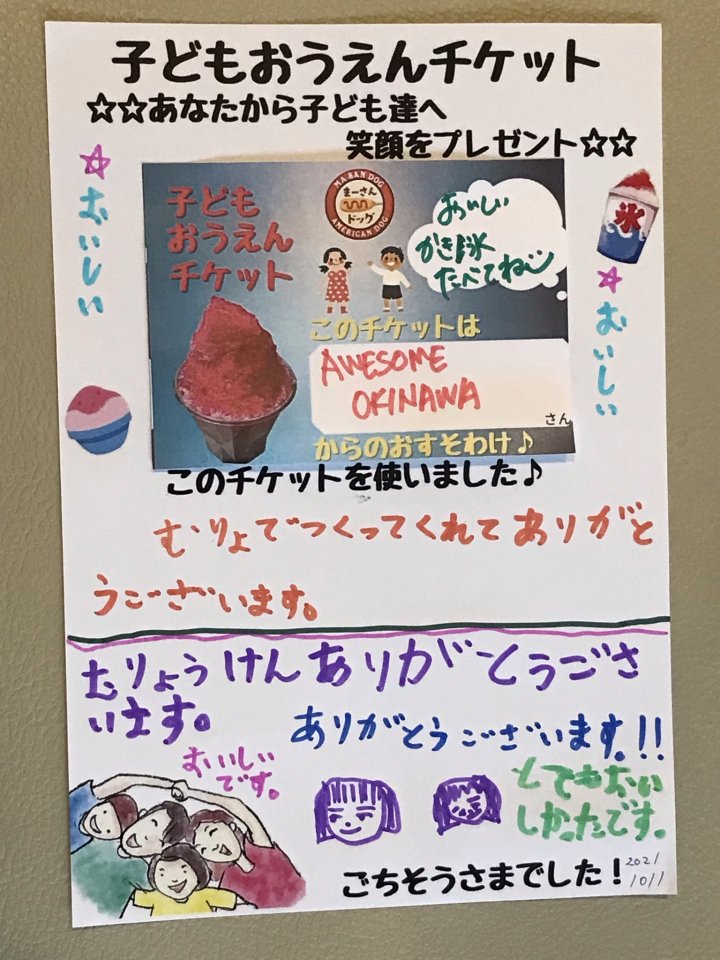 子どもおうえんチケット
☆☆あなたから子ども達へ
笑顔をプレゼント☆☆
☆おいしい
子ども
おうえん
チケット
MA SAN DOG
まーさん
ドッグ
AMERICAN DOG
おいしい
かき氷
たべてね
氷
☆おいしい
このチケットは
AWESOME
OKINAWA
さん
からのおすそわけ♪
このチケットを使いました♪
むりょでつくってくれてありがと
うございます。
むりょうけんありがとうござ
います。
ありがとうございます。!!
おいしい
です。
とてもおい
しかったです。
ごちそうさまでした!
2021
10/1